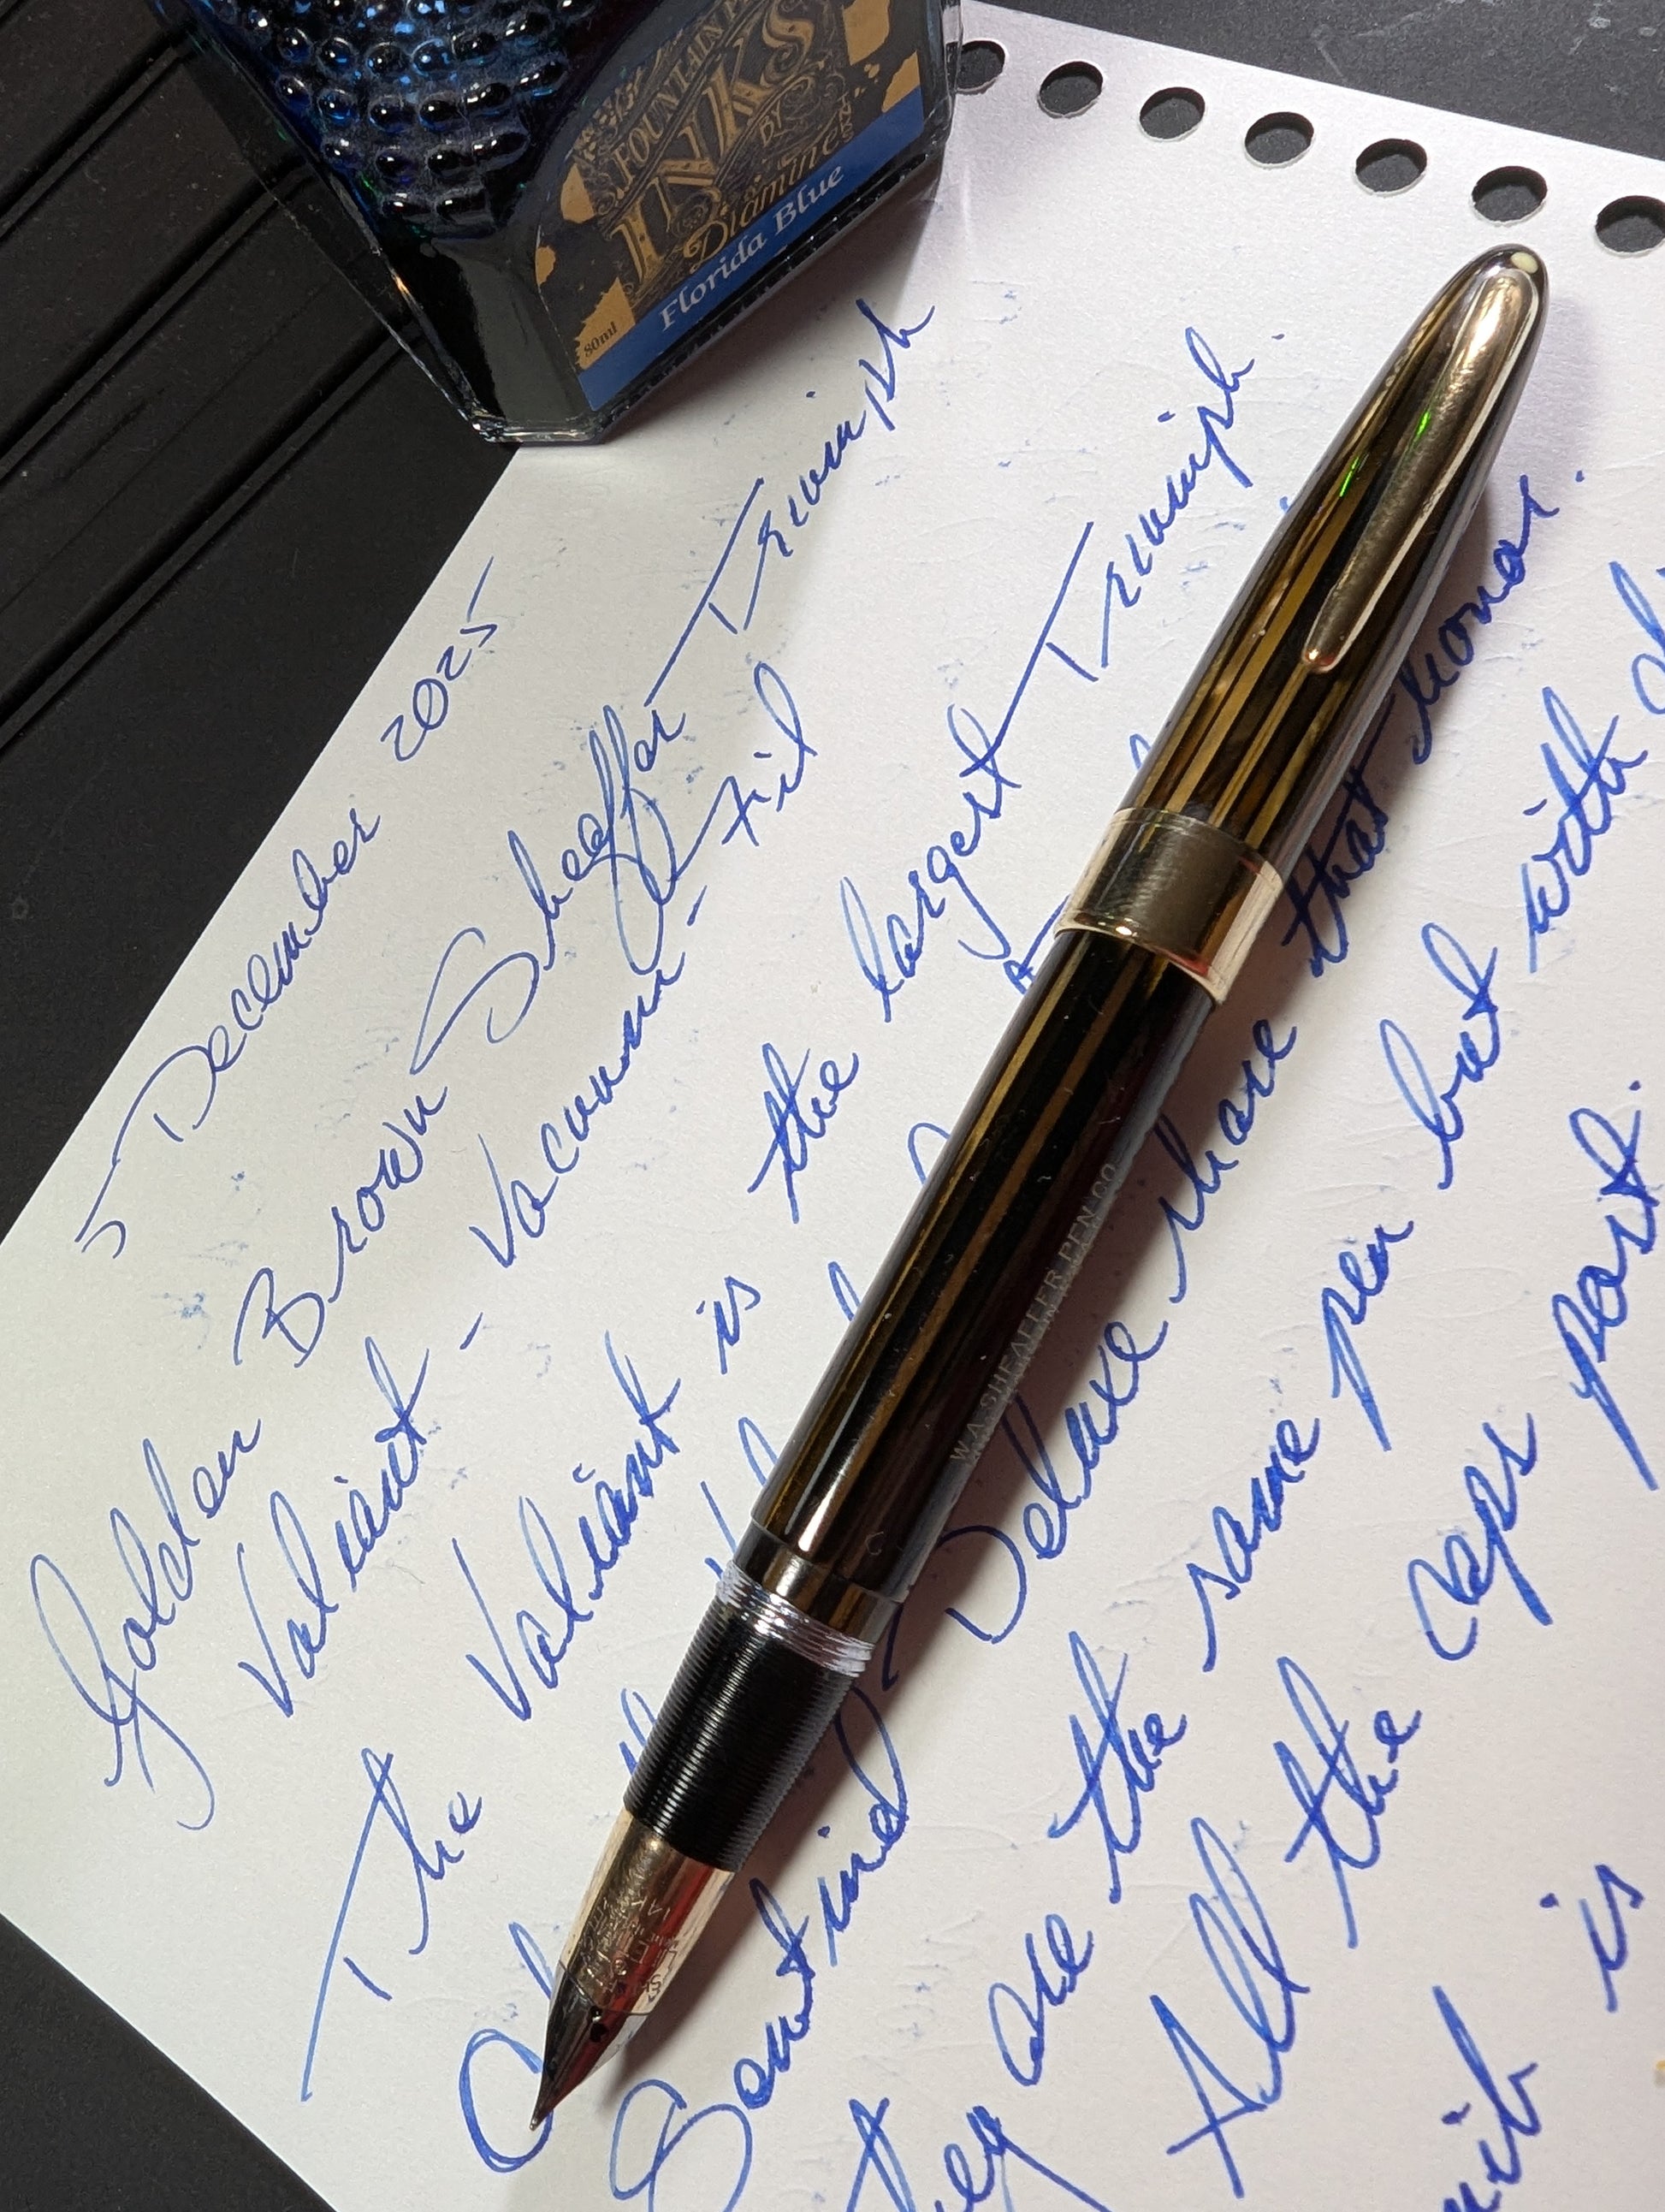 FOUNTAIN
INKS
BY
Diamine
Florida Blue
80ml
5 December 2025
Golden Brown Sheaffer Triumph
Valiant - Vacuum-Fil
The Valiant is the largest Triumph.
Sentinel Deluxe share that honor.
They are the same pen but with
All the caps post.
nib is
W.A.SHEAFFER PEN CO